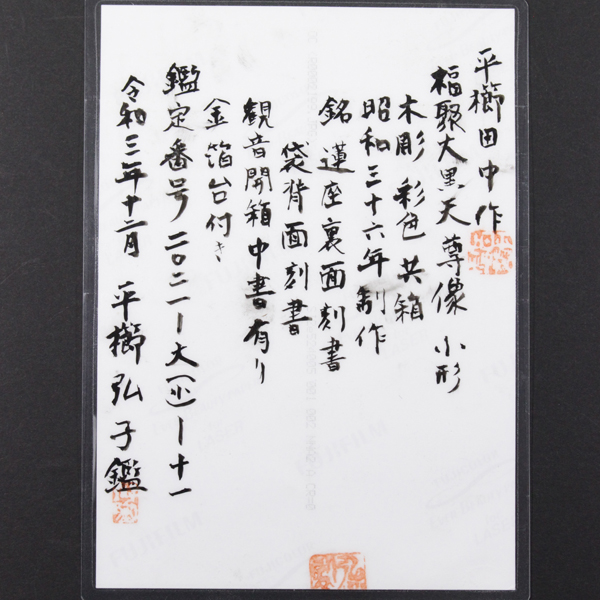 平櫛田中作
福聚大黒天尊像 小形
木彫 彩色 共箱
昭和三十六年制作
銘 蓮座裏面刻書
袋背面刻書
観音開箱中書有り
金箔台付き
鑑定番号 二〇二一ー大(小)ー十一
令和三年十二月 平櫛弘子鑑